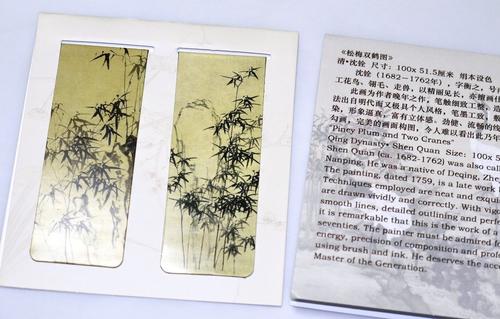 《松梅双鹤图》
清·沈铨 尺寸：100x 51.5厘米 绢本设色
沈铨（1682—1762年），字衡之，号南
工花鸟、翎毛、走兽，以精丽见长，亦擅画
此画为作者晚年之作，笔触细致工整，造
法出自明代而又极具个人风格，笔墨工致，敷
染，形象逼真，富有立体感。劲健、流畅的
勾画，完美的画面构图，令人难以看出此乃年
"Piney Plum and Two Cranes"
Qing Dynasty• Shen Quan Size: 100x 5
Shen Quan (ca. 1682-1762) was also calle
Nanping. He was a native of Deqing, Zhe
The painting, dated 1759, is a late work
Techniques employed are neat and exqui
are drawn vividly and correctly. With vi
smooth lines, detailed outlining and per
it is remarkable that this is the work of a
seventies. The painter must be admired fo
energy, precision of composition and prof
using brush and ink. He deserves the acc
Master of the Generation.